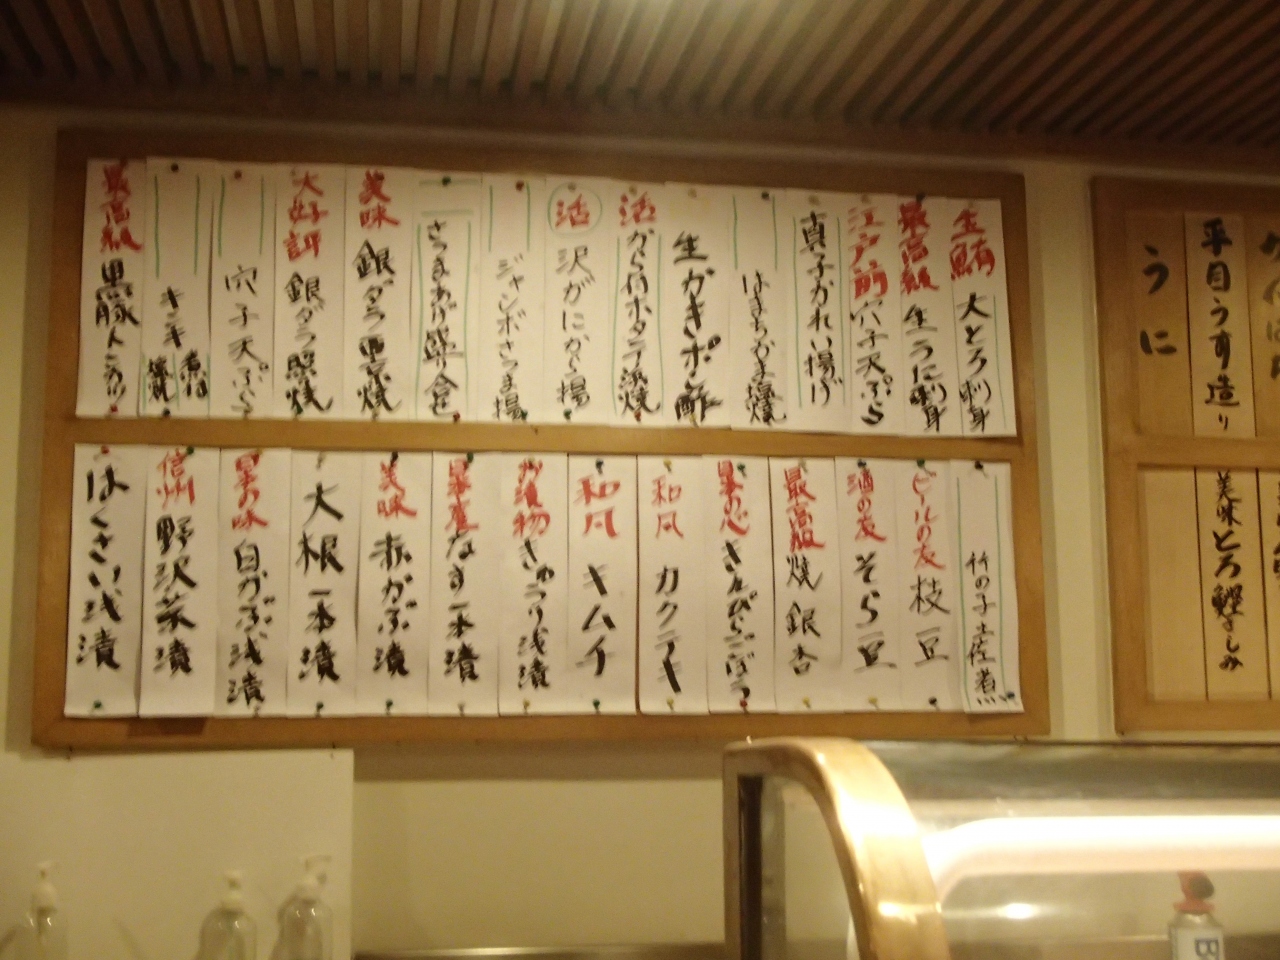 生鮪 大とろ刺身
最高級 生うに刺身
江戸前 穴子天ぷら
真子かれい揚げ
はまちかま塩焼
生がきポン酢
活 から付ホタテ浜焼
活 沢がにから揚
ジャンボさつま揚
さつまあげ盛り合せ
美味 銀ダラ西京焼
大好評 銀ダラ照焼
穴子天ぷら
キンキ 煮付 塩焼
最高級 黒豚トンカツ
竹の子土佐煮
ビールの友 枝豆
酒の友 そら豆
最高級 焼銀杏
きんぴらごぼう
和風 カクテキ
和風 キムチ
お漬物 きゅうり浅漬
なす一本漬
美味 赤かぶ漬
大根一本漬
白かぶ浅漬
信州 野沢菜漬
はくさい浅漬
平目うす造り
うに
美味 とろ鰹